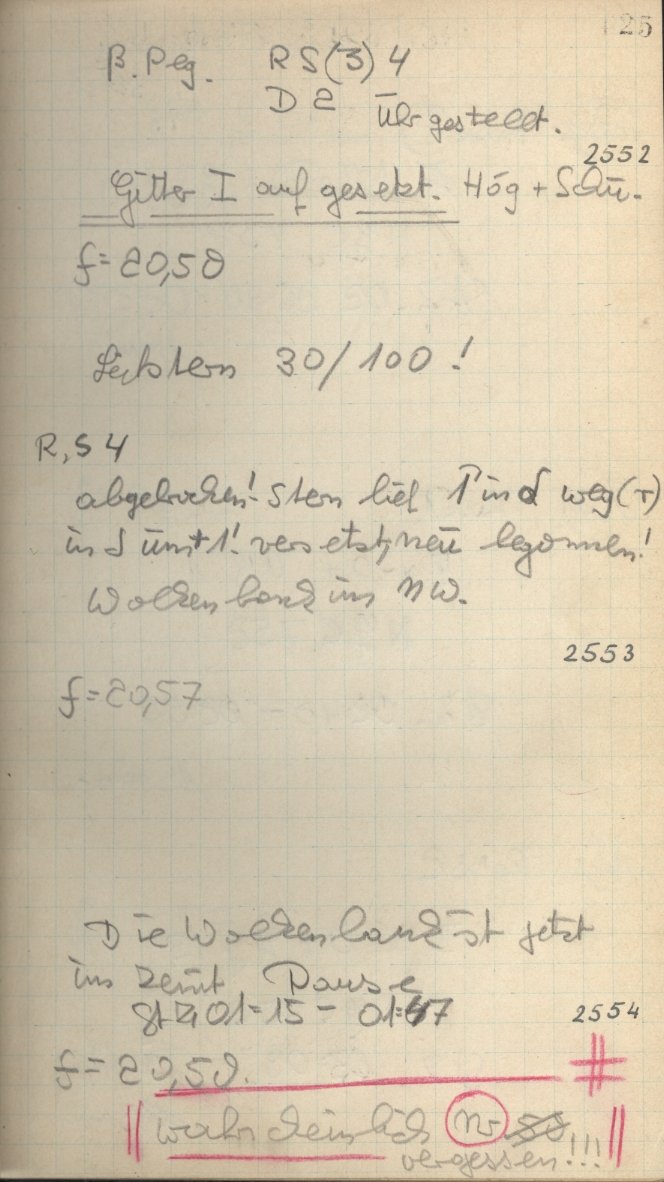 25
β. Peg. RS(3) 4
D 2 Uhr gestellt.
2552
Gitter I aufgesetzt. Hög + Schü.
f = 20,50
Leitstern 30/100!
R, S 4
abgebrochen! Stern lief 1' in δ weg (τ)
in δ um +1'. versetzt, neu begonnen!
Wolkenbank im NW.
2553
f = 20,57
Die Wolkenbank ist jetzt
im Zenit, Pause
StZ 01=15 - 01=47
2554
f = 20,50.
wahrscheinlich Nr
vergessen!!!